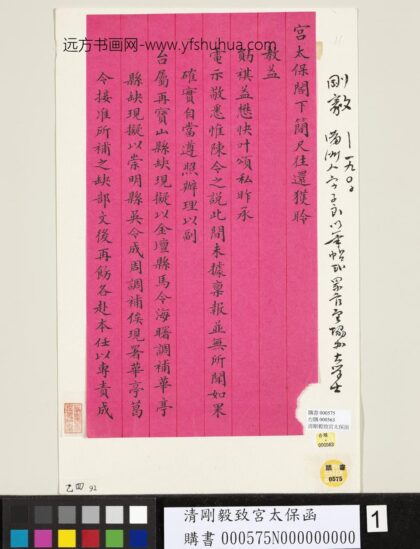 远方书画网- www.yfshuhua.com
剛毅 —一九〇〇
滿洲人字子良以筆帖式累官至協辦大學士
宮太保閣下簡尺往還獲聆
教益
賜祺益懋快叶頌私昨承
電示敬悉惟陳令之說此間未據稟報並無所聞如果
確實自當遵照辦理以副
台屬再寶山縣缺現擬以金壇縣馬令海曙調補華亭
縣缺現擬以崇明縣吳令成周調補俟現署華亭葛
令接准所補之缺部文後再飭各赴本任以專責成
購書 000575
台購 000563
清剛毅致宮太保函
台購
000563
購書
0575
乙四 92
清剛毅致宮太保函
購書 000575N000000000
1